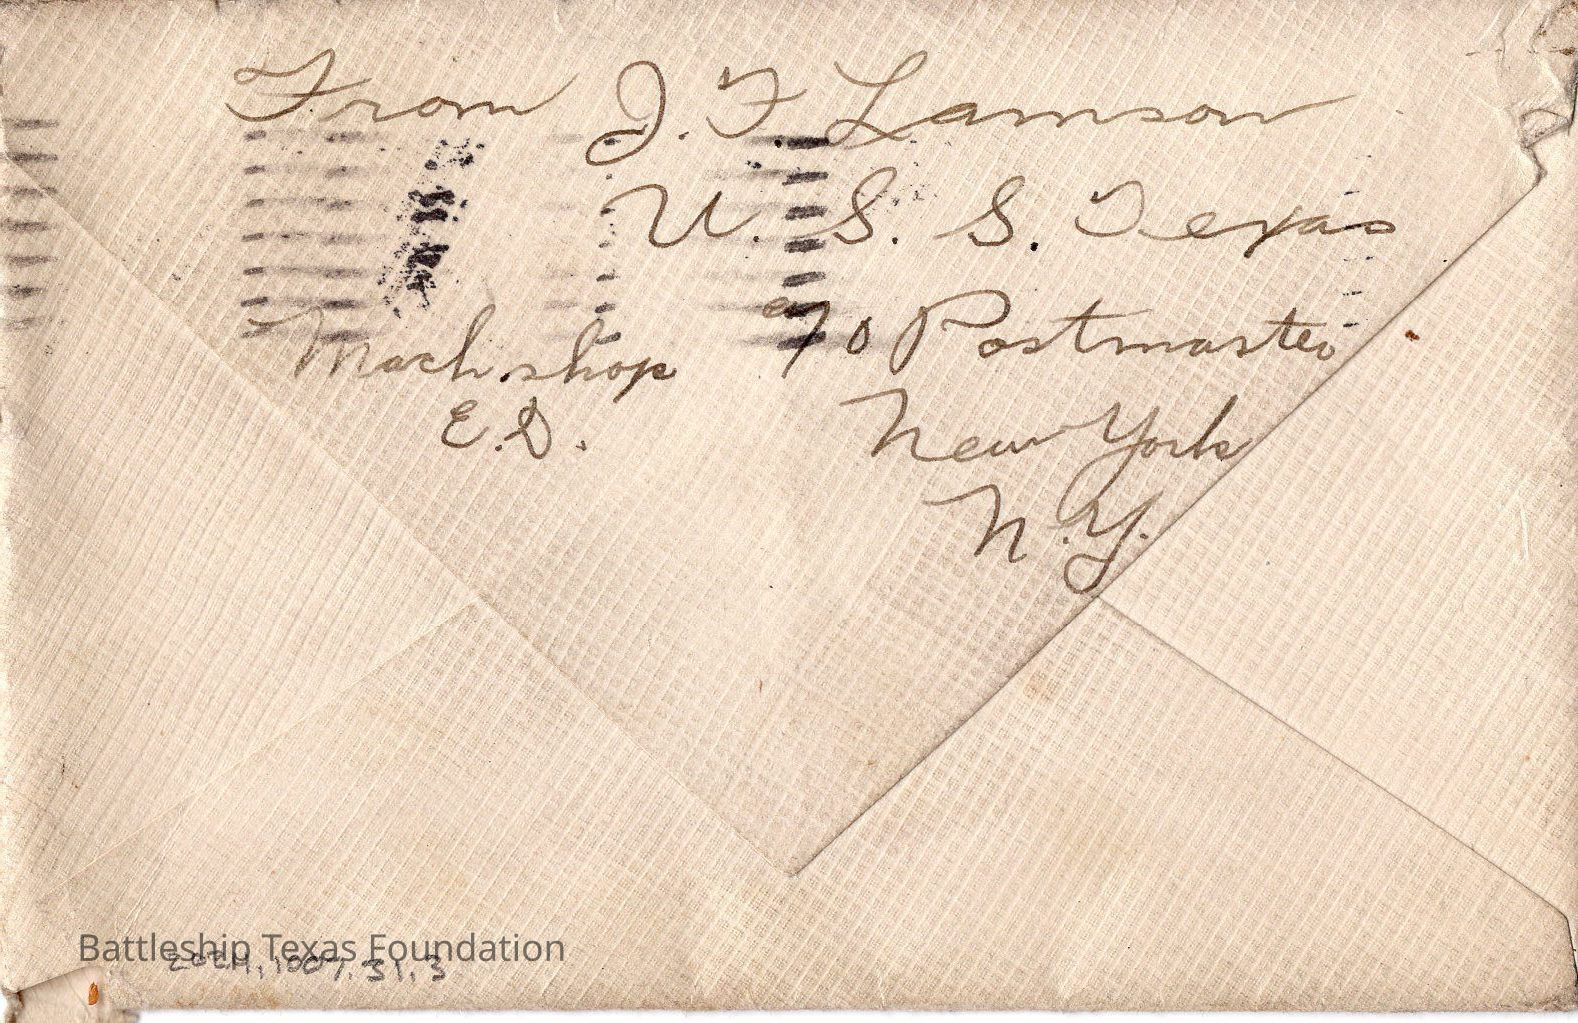 From J. F Lamson
U. S. S. Texas
c/o Postmaster
Mach. shop
E.D.
New York
N.Y.
Battleship Texas Foundation
2024.1007.31.3